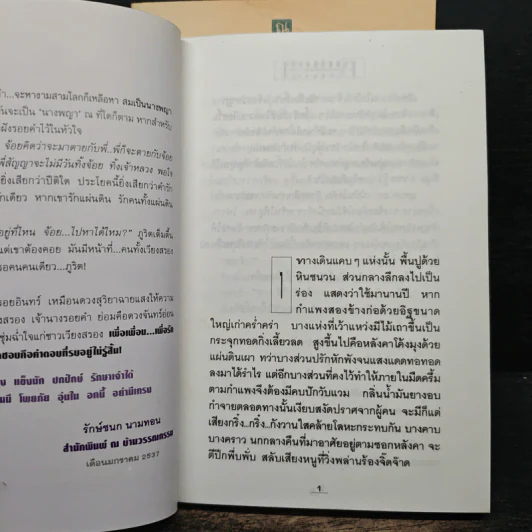 ณ
...จะหางามสามโลกก็เหลือหา สมเป็นนางพญา
จะเป็น 'นางพญา' ณ ที่ใดก็ตาม หากสำหรับ
ฝังรอยคำไว้ในหัวใจ
จ้อยคิดว่าจะมาตายกับพี่...พี่ก็จะตายกับจ้อย
สัญญาจะไม่มีวันทิ้งจ้อย ทิ้งเจ้าหลวง พอใจ
ยิ่งเสียกว่าปีติใด ประโยคนี้ยิ่งเสียกว่าคำรัก
เดียว หากเขารักแผ่นดิน รักคนทั้งแผ่นดิน
อยู่ที่ไหน จ้อย...ไปหาได้ไหม?" ภูริตเต็มตื้น
แต่เขาต้องคอย มันมีหน้าที่...คนทั้งเวียงสรอง
คนคนเดียว...ภูริต!
รอยอินทร์ เหมือนดวงสุริยาฉายแสงให้ความ
สรอง เจ้านางรอยคำ ย่อมคือดวงจันทร์อ่อน
ชุ่มฉ่ำใจแก่ชาวเวียงสรอง เพื่อเพื่อน...เพื่อรัก
คือคำตอบที่รบอยู่ไม่รู้สิ้น!
แข็งนัก ปกปักษ์ รักษาเจ้าไว้
โพยภัย อุ่นใจ อกนี้ อย่ามีเกรง
รักษ์ชนก นามทอน
สำนักพิมพ์ ณ บ้านวรรณกรรม
เดือนมกราคม 2537
๑
ทางเดินแคบ ๆ แห่งนั้น พื้นปูด้วย
หินชนวน ส่วนกลางลึกลงไปเป็น
ร่อง แสดงว่าใช้มานานปี หาก
กำแพงสองข้างก่อด้วยอิฐขนาด
ใหญ่เก่าคร่ำคร่า บางแห่งที่เว้าแหว่งมีไม้เถาขึ้นเป็น
กระจุกทอดกิ่งเลี้ยวลด สูงขึ้นไปคือหลังคาโค้งมุงด้วย
แผ่นดินเผา ทว่าบางส่วนปรักหักพังจนแสงแดดทอทอด
ลงมาได้รำไร แต่อีกบางส่วนที่คงไว้ทำให้ภายในมืดครึ้ม
ตามกำแพงจึงต้องมีคบปักวับแวม กลิ่นน้ำมันยางอบ
กำจายตลอดทางนั้นเงียบสงัดปราศจากผู้คน จะมีก็แต่
เสียงกริ๊ง..กริ๊ง..กังวานใสคล้ายโลหะกระทบกัน บางคาบ
บางคราว นกกลางคืนที่มาอาศัยอยู่ตามซอกหลังคา จะ
ตีปีกพึ่บพั่บ สลับเสียงหนูที่วิ่งพล่านร้องจี๊ดจ๊าด
1